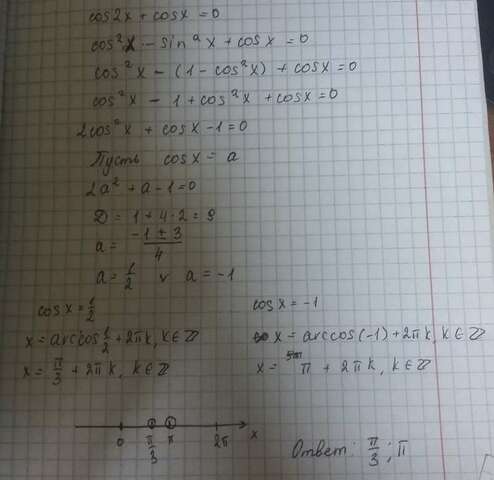 cos2x + cosx = 0
cos²x - sin²x + cosx = 0
cos²x - (1 - cos²x) + cosx = 0
cos²x - 1 + cos²x + cosx = 0
2cos²x + cosx - 1 = 0
Пусть cosx = a
2a² + a - 1 = 0
D = 1 + 4·2 = 9
a = (-1 ± 3)/4
a = 1/2 v a = -1
cosx = 1/2
x = arccos 1/2 + 2πk, k∈Z
x = π/3 + 2πk, k∈Z
cosx = -1
x = arccos(-1) + 2πk, k∈Z
x = π + 2πk, k∈Z
0 π/3 π 2π x
Ответ: π/3; π